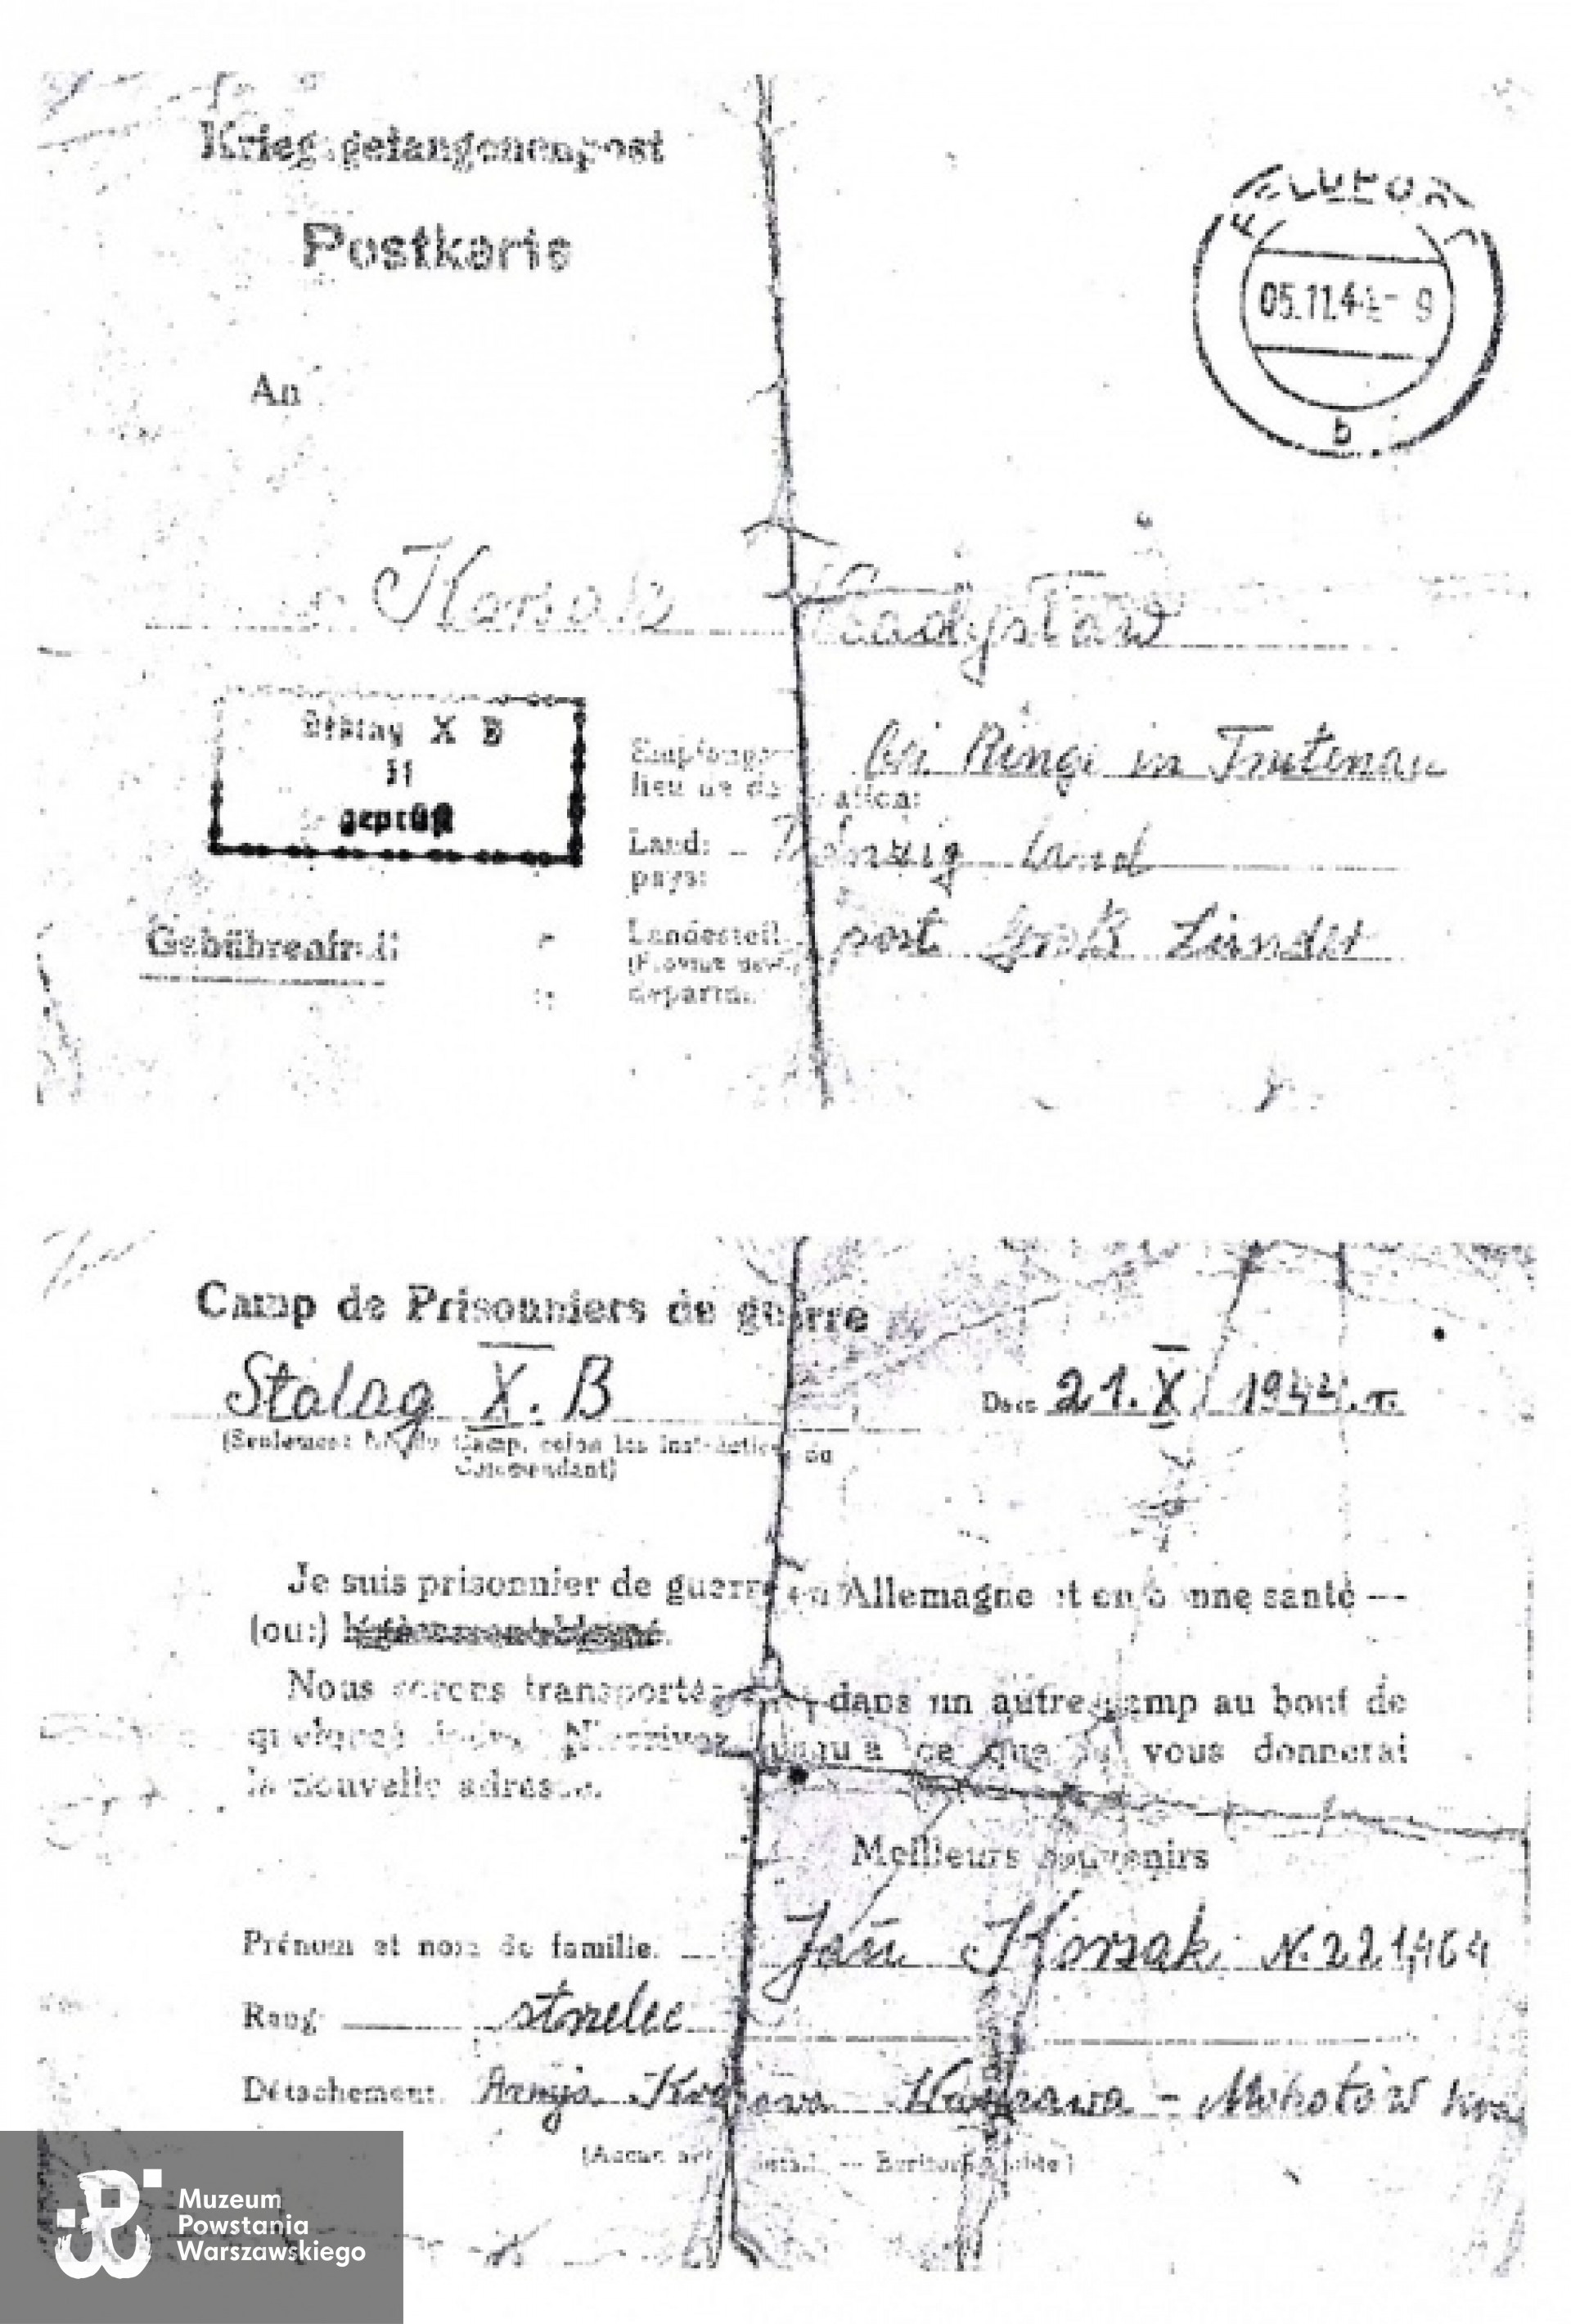 Kriegsgefangenenpost
Postkarte
An
FELDPOST
05.11.44 - 9
b
Władysław
Stalag X B
geprüft
bei Ringe in Trutenau
Land: Danzig land
pays:
Gebührenfrei!
Landesteil post Groß Zünder
départ.
Camp de Prisonniers de guerre
Stalag X. B
Date 21. X 1944. r.
(Seulement No. du Camp, selon les instructions du
Commandant)
Je suis prisonnier de guerre en Allemagne et en bonne santé --
(ou:) légèrement blessé.
Nous serons transportés dans un autre camp au bout de
quelques jours. N'écrivez jusqu'à ce que je vous donnerai
la nouvelle adresse.
Meilleurs souvenirs
Prénom et nom de famille. Jan Korzak N. 221464
Rang strzelec
Détachement. Armja Krajowa Warszawa - Mokotów
Muzeum
Powstania
Warszawskiego